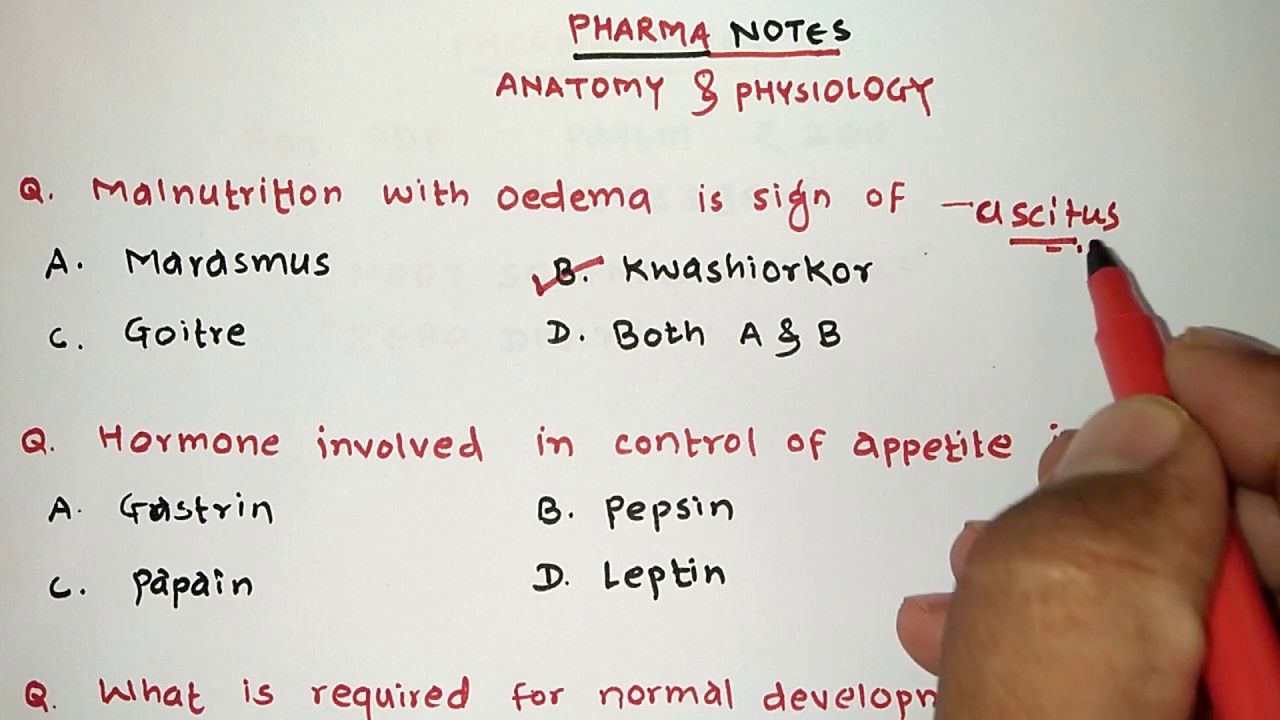 PHARMA NOTES
ANATOMY & PHYSIOLOGY
Q. Malnutrition with oedema is sign of – ascitus
A. Marasmus B. Kwashiorkor
C. Goitre D. Both A & B
Q. Hormone involved in control of appetite
A. Gastrin B. Pepsin
C. Papain D. Leptin
Q. What is required for normal